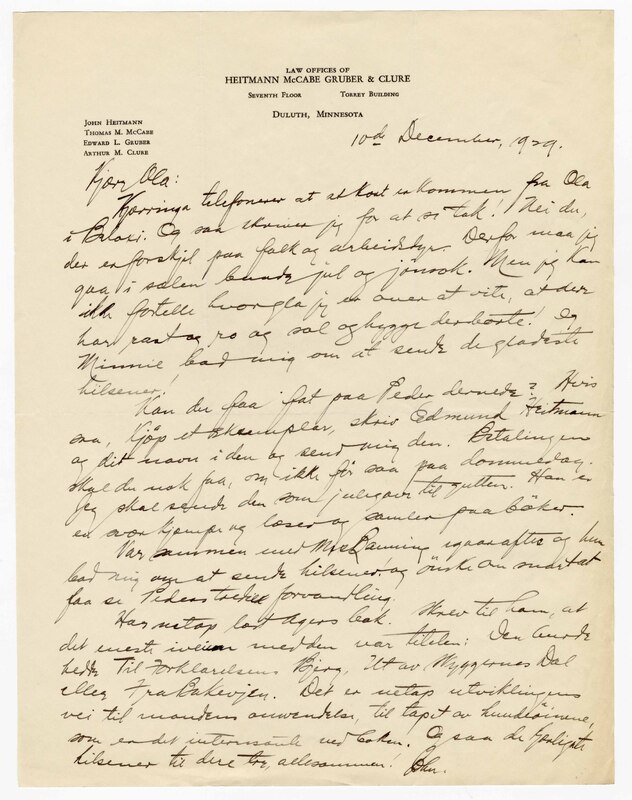 LAW OFFICES OF
HEITMANN McCABE GRUBER & CLURE
SEVENTH FLOOR TORREY BUILDING
DULUTH, MINNESOTA
JOHN HEITMANN
THOMAS M. McCABE
EDWARD L. GRUBER
ARTHUR M. CLURE
10de December, 1929.
Kjære Ola:
Kjærringa telefonerer at et kort er kommen fra Ola
i Biloxi. Og saa skriver jeg for at si tak! Nei du,
der er forskjel paa folk og arbeidsdyr. Derfor maa jeg
gaa i sælen baade jul og jonsok. Men jeg kan
ikke fortelle hvor gla jeg er over at vite, at dere
har rast og ro og sol og hygge derborte! Og
Minnie bad mig om at sende de gladeste
hilsener!
Kan du faa fat paa Peder dernede? Hvis
saa, kjøp et eksemplar, skriv Edmund Heitmann
og dit navn i den og send mig den. Betalingen
skal du nok faa, om ikke før saa paa dommedag.
Jeg skal sende den som julegave til gutten. Han er
en svær kjempe og læser og samler paa bøker.
Var sammen med Mrs. Banning igaar aftes og hun
bad mig om at sende hilsener og ønske om snart at
faa se Peders forvandling.
Har netop læst Agers bok. Skrev til ham, at
det eneste iveien med den var titelen: Den burde
hedde Til Forklarelsens Bjerg, Ut av Myggernes Dal
eller Fra Bakevjen. Det er netop utviklingens
vei til mandens anvendelse, til tapet av hundeøinene,
som er det interessante ved boken. Og saa de
hilsener til dere tre, allesammen! John.